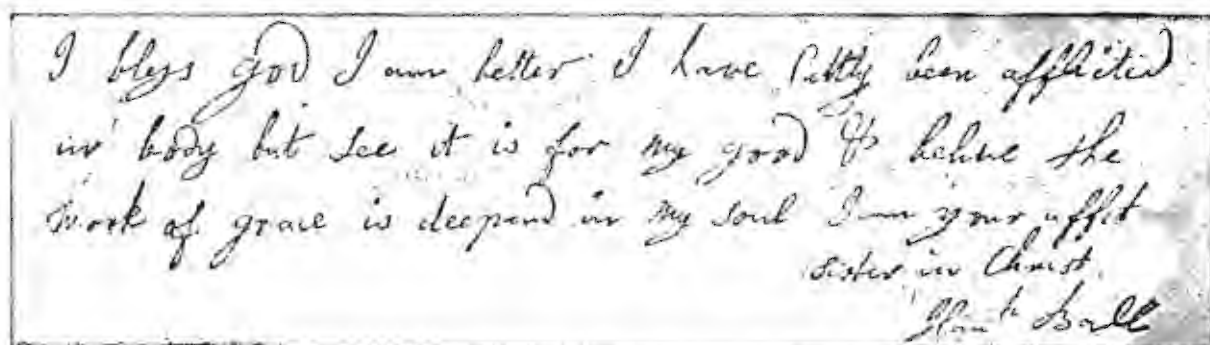 I bless god I am better I have lattly been afflicted
in body but see it is for my good & believe the
work of grace is deepend in my soul I am your affct
sister in Christ
Hanh Ball